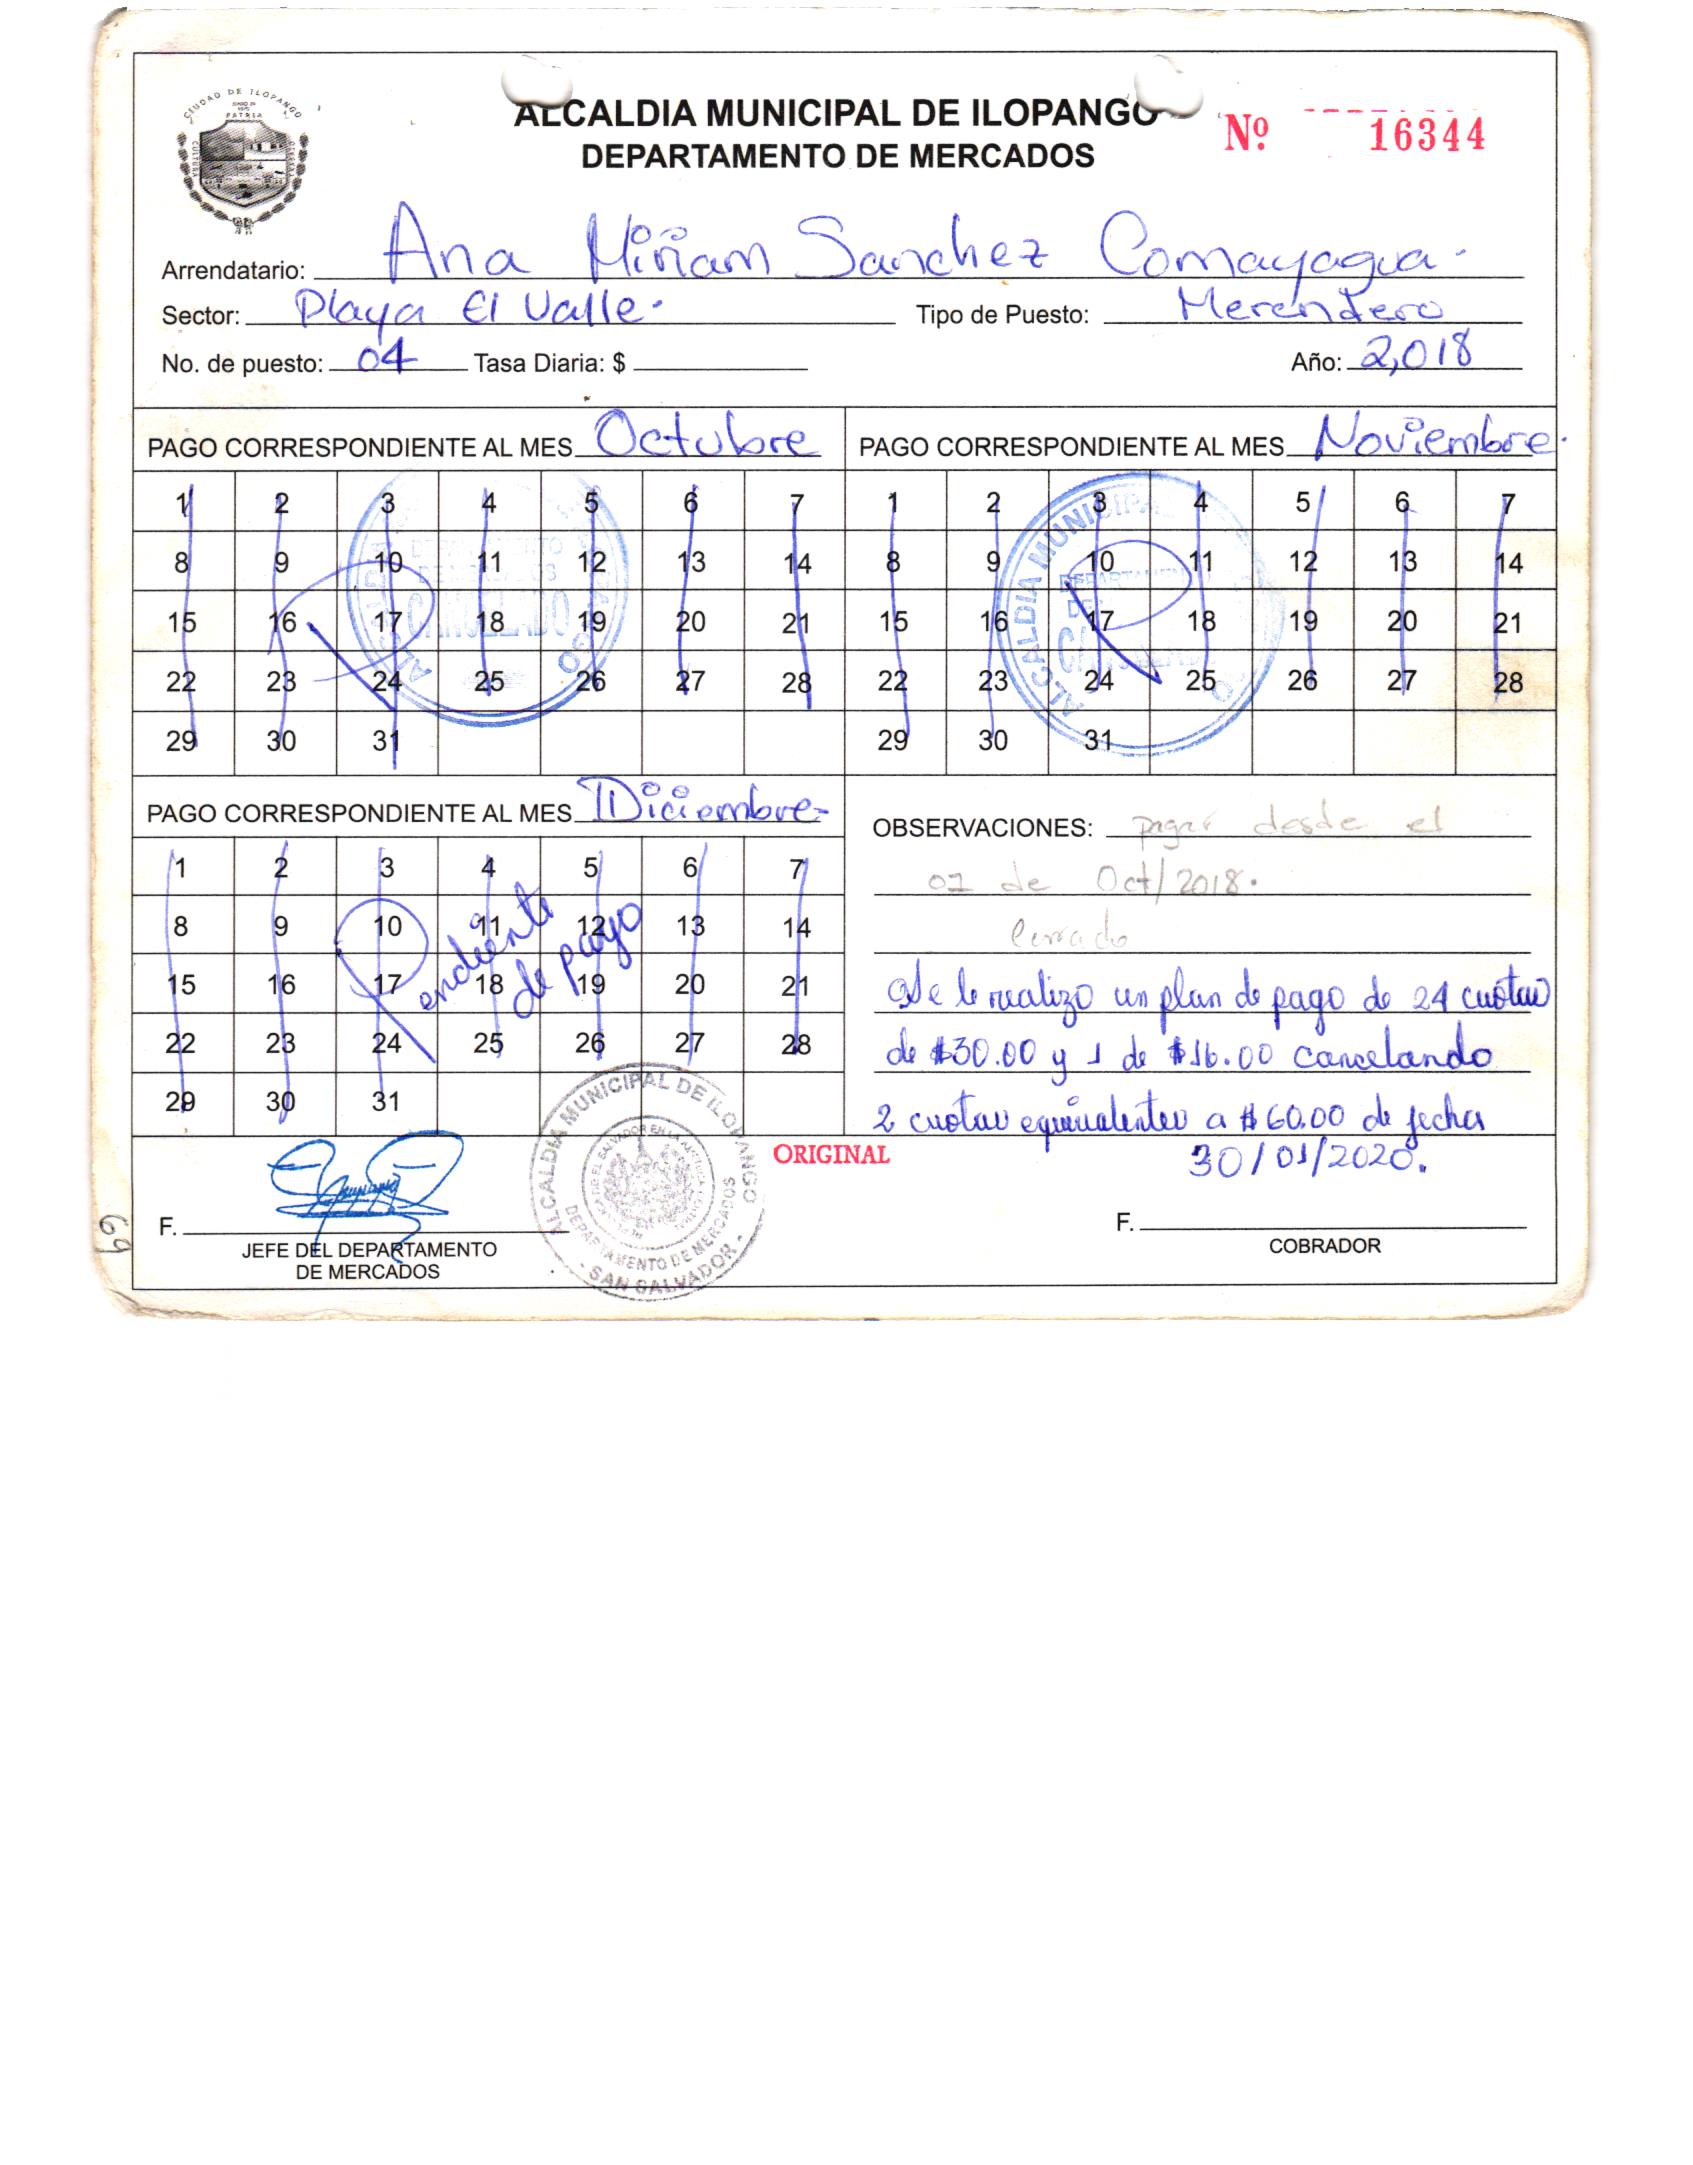 CIUDAD DE ILOPANGO
PATRIA
CULTURA
ALCALDIA MUNICIPAL DE ILOPANGO
DEPARTAMENTO DE MERCADOS
Nº 16344
Arrendatario: Ana Miriam Sanchez Comayagua.
Sector: Playa El Valle. Tipo de Puesto: Merendero
No. de puesto: 04 Tasa Diaria: $ Año: 2,018
PAGO CORRESPONDIENTE AL MES Octubre
1 2 3 4 5 6 7
8 9 10 11 12 13 14
15 16 17 18 19 20 21
22 23 24 25 26 27 28
29 30 31
DEPARTAMENTO
DE MERCADOS
CANCELADO
PAGO CORRESPONDIENTE AL MES Noviembre.
1 2 3 4 5 6 7
8 9 10 11 12 13 14
15 16 17 18 19 20 21
22 23 24 25 26 27 28
29 30 31
ALCALDIA MUNICIPAL
PAGO CORRESPONDIENTE AL MES Diciembre-
1 2 3 4 5 6 7
8 9 10 11 12 13 14
15 16 17 18 19 20 21
22 23 24 25 26 27 28
29 30 31
Pendiente
de pago
OBSERVACIONES: pagar desde el
01 de Oct/2018.
Cerrado
Se le realizo un plan de pago de 24 cuotas
de $30.00 y 1 de $16.00 cancelando
2 cuotas equivalentes a $60.00 de fecha
30/01/2020.
ORIGINAL
F.
JEFE DEL DEPARTAMENTO
DE MERCADOS
ALCALDIA MUNICIPAL DE ILOPANGO
DEPARTAMENTO DE MERCADOS
- SAN SALVADOR -
F.
COBRADOR
69